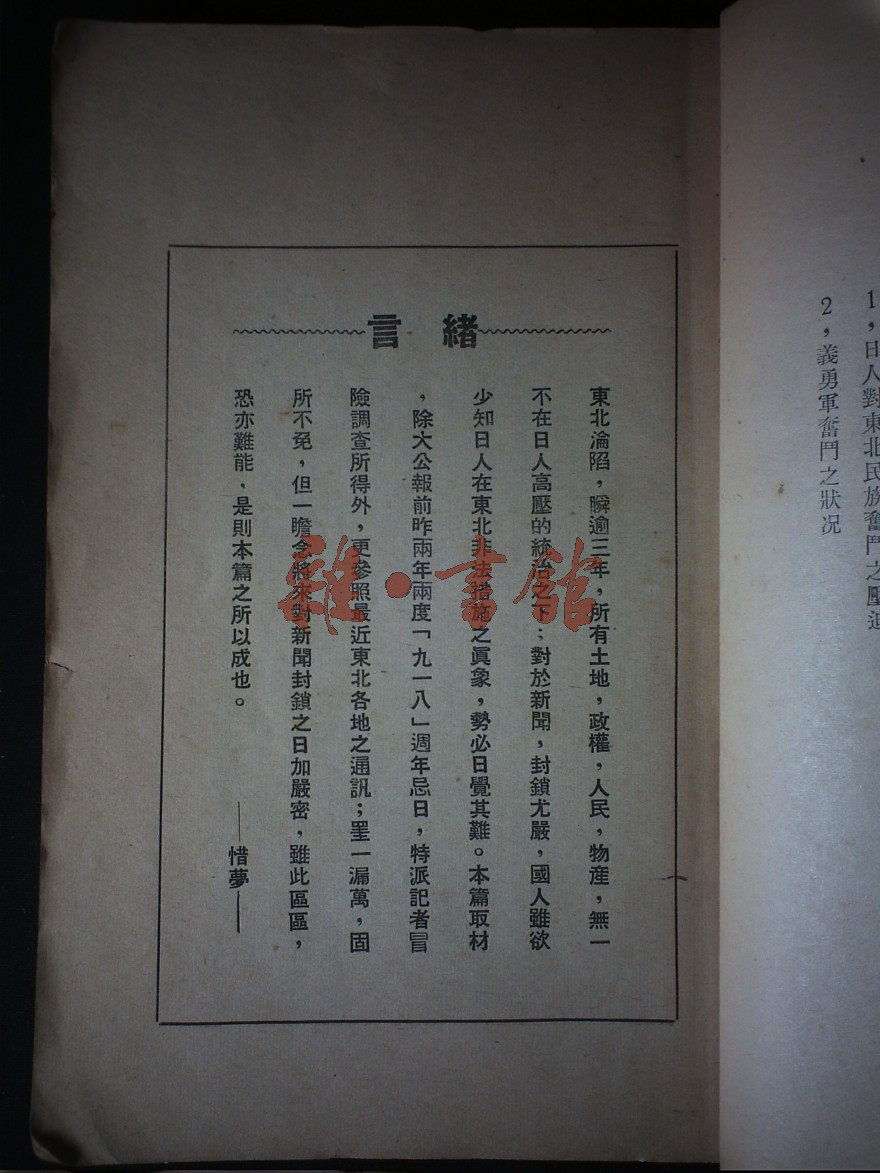 1，日人對東北民族奮鬥之壓迫
2，義勇軍奮鬥之狀况
緒言
東北淪陷，瞬逾三年，所有土地，政權，人民，物產，無一
不在日人高壓的統治之下；對於新聞，封鎖尤嚴，國人雖欲
少知日人在東北非法措施之眞象，勢必日覺其難。本篇取材
，除大公報前昨兩年兩度「九一八」週年忌日，特派記者冒
險調查所得外，更參照最近東北各地之通訊；罣一漏萬，固
所不免，但一瞻念將來對新聞封鎖之日加嚴密，雖此區區，
恐亦難能，是則本篇之所以成也。
——惜夢——
雜·書館